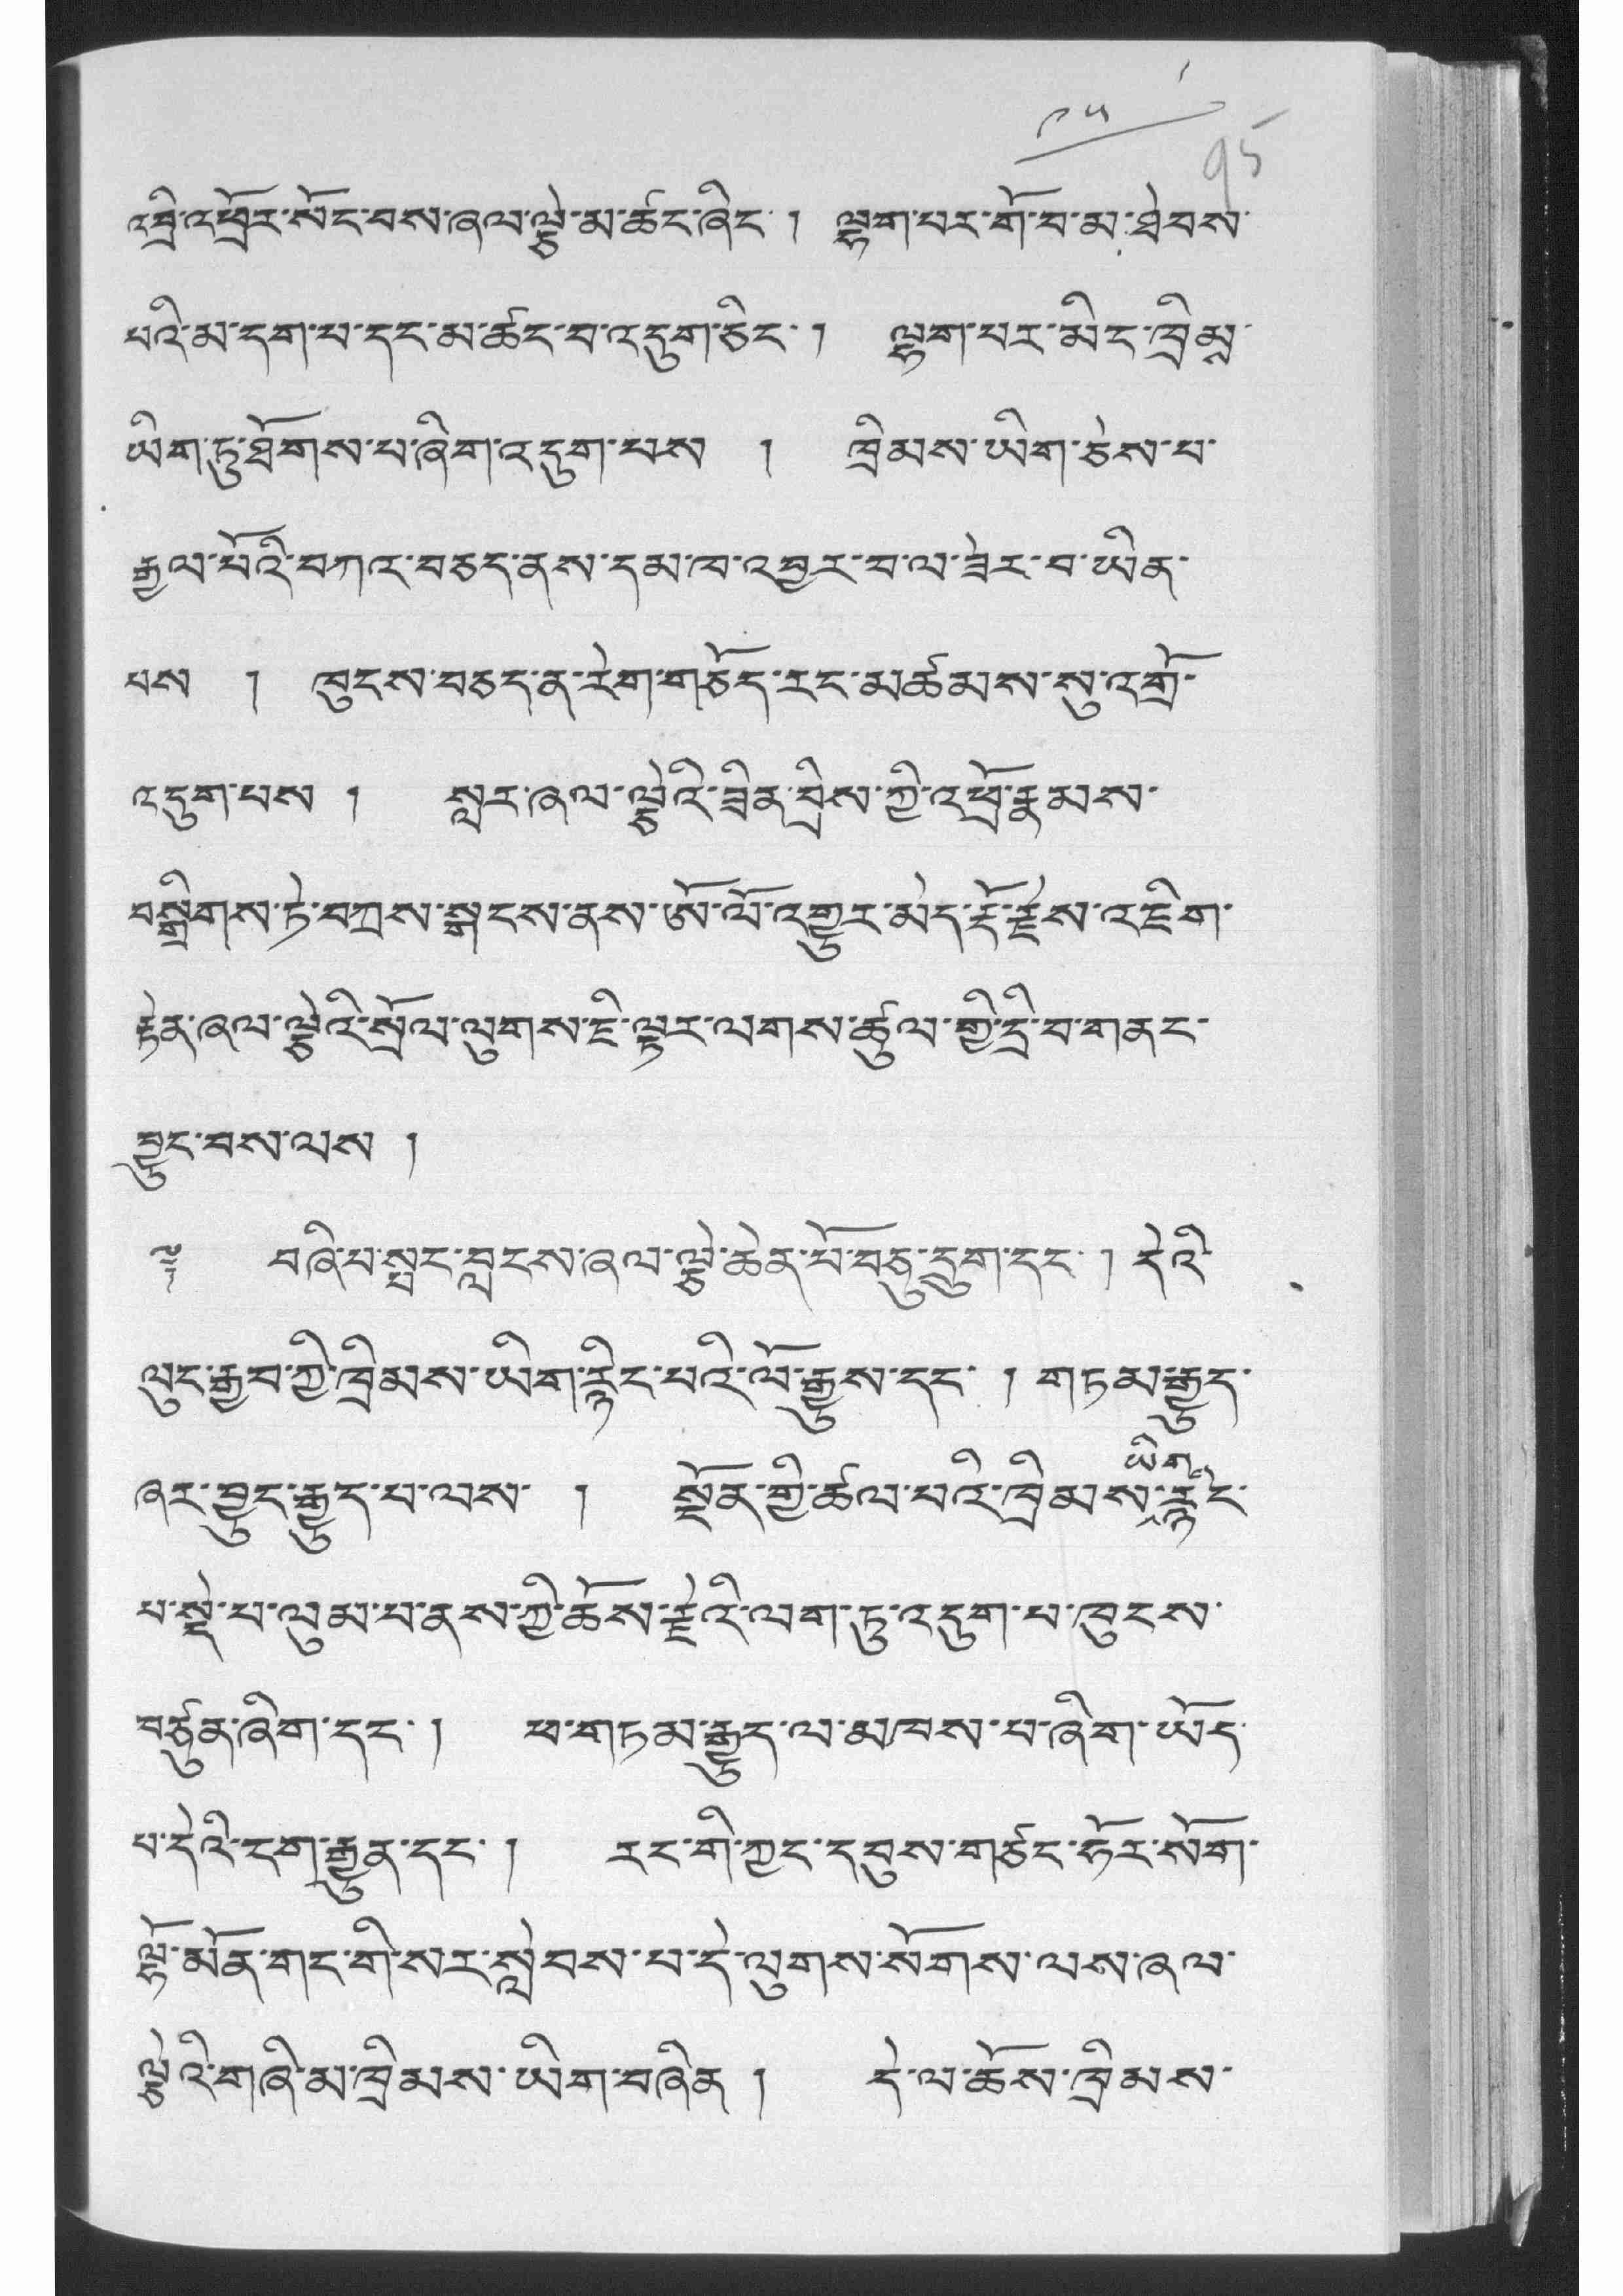 ༡༥
95
འབྲི་འཕྲོར་སོང་བས་ཞལ་ལྕེ་མ་ཚང་ཞིང་། ལྷག་པར་གོ་བ་མ་ཐེབས་
པའི་མ་དག་པ་དང་མ་ཚང་བ་འདུག་ཅིང་། ལྷག་པར་མིང་ཁྲིམས་
ཡིག་ཏུ་ཐོགས་པ་ཞིག་འདུག་པས། ཁྲིམས་ཡིག་ཅེས་པ་
རྒྱལ་པོའི་བཀའ་བཅད་ནས་དམ་ཁ་འབྱར་བ་ལ་ཟེར་བ་ཡིན་
པས། ཁུངས་བཅད་ན་རེག་གཅོད་རང་མཚམས་སུ་འགྲོ་
འདུག་པས། སླར་ཞལ་ལྕེའི་ཟིན་བྲིས་ཀྱི་འཕྲོ་རྣམས་
བསྒྲིགས་ཏེ་བཀྲས་སྒྲངས་ནས་ཨོ་ལོ་འགྱུར་མེད་རྡོ་རྗེས་འཇིག་
རྟེན་ཞལ་ལྕེའི་སྲོལ་ལུགས་ཇི་ལྟར་ལགས་ཚུལ་གྱི་དྲི་བ་གནང་
བྱུང་བས་ལས།
༈ བཞི་པ་སྤང་བླངས་ཞལ་ལྕེ་ཆེན་པོ་བཅུ་དྲུག་དང་། དེའི་
ལུང་རྒྱབ་ཀྱི་ཁྲིམས་ཡིག་རྙིང་པའི་ལོ་རྒྱུས་དང་། གཏམ་རྒྱུད་
ཞར་བྱུང་རྒྱུད་པ་ལས། སྔོན་གྱི་ཚལ་པའི་ཁྲིམས་ཡིག་རྙིང་
པ་སྡེ་པ་ལུམ་པ་ནས་ཀྱི་ཆོས་རྗེའི་ལག་ཏུ་འདུག་པ་ཁུངས་
བཙུན་ཞིག་དང་། ཕ་གཏམ་རྒྱུད་ལ་མཁས་པ་ཞིག་ཡོད་
པ་དེའི་ངག་རྒྱུན་དང་། རང་གི་ཀྱང་དབུས་གཙང་ཧོར་སོག་
ལྷོ་མོན་གང་གི་སར་སླེབས་པ་དེ་ལུགས་སོགས་ལས་ཞལ་
ལྕེའི་གཞི་མ་ཁྲིམས་ཡིག་བཞིན། དེ་ལ་ཆོས་ཁྲིམས་